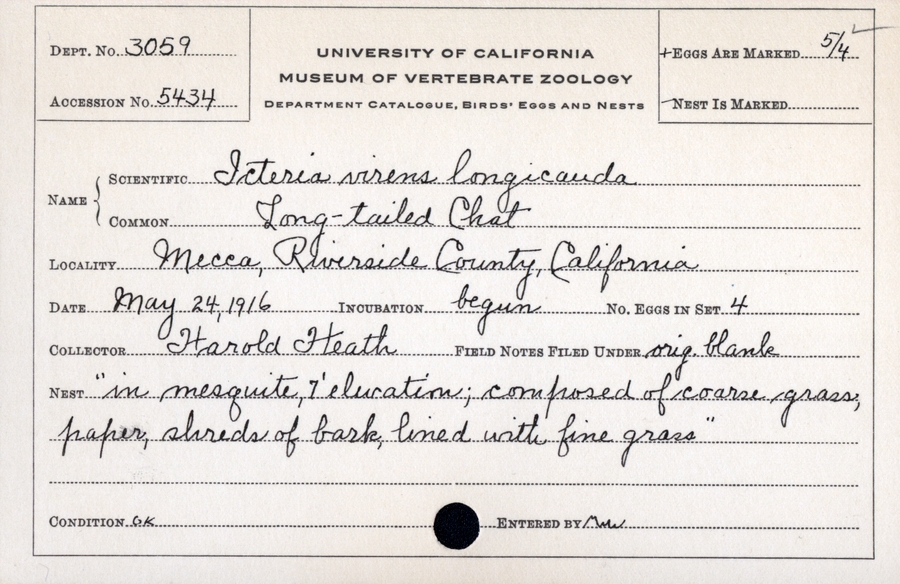 Dept. No. 3059
Accession No. 5434
UNIVERSITY OF CALIFORNIA
MUSEUM OF VERTEBRATE ZOOLOGY
Department Catalogue, Birds' Eggs and Nests
+Eggs Are Marked 5/4
-Nest Is Marked
Name
Scientific Icteria virens longicauda
Common Long-tailed Chat
Locality Mecca, Riverside County, California
Date May 24, 1916 Incubation begun No. Eggs in Set 4
Collector Harold Heath Field Notes Filed Under orig. blank
Nest "in mesquite, 7' elevation; composed of coarse grass,
paper, shreds of bark, lined with fine grass"
Condition OK Entered by